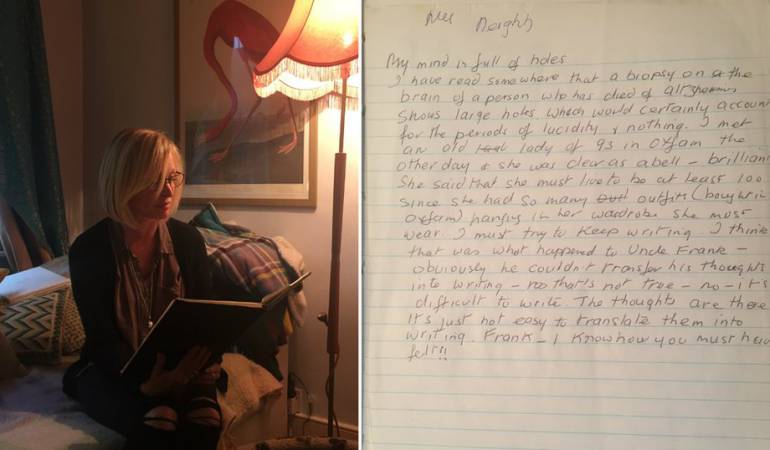 My mind is full of holes
I have read somewhere that a biopsy on the
brain of a person who has died of
shows large holes which would certainly account
for the periods of lucidity & nothing. I met
an old lady of 93 in Oxfam the
other day & she was clear as a bell – brillian
She said that she must live to be at least 100
since she had so many outfits (bought in
Oxfam) hanging in her wardrobe she must
wear. I must try to keep writing. I think
that was what happened to Uncle Frank –
obviously he couldn't transfer his thoughts
into writing – no that's not true – no – it's
difficult to write. The thoughts are there
it's just not easy to translate them into
writing. Frank – I know how you must hav
felt!!